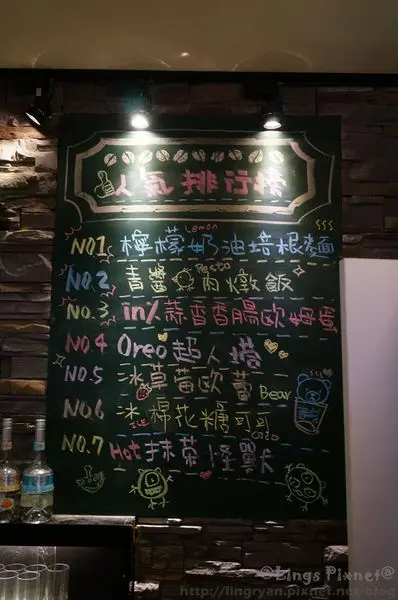 人氣排行榜
NO.1 檸檬奶油培根麵
Lemon
NO.2 青醬 肉燉飯
Pesto
NO.3 in%蒜香香腸歐姆蛋
NO.4 Oreo超人撈
NO.5 冰草莓歐蕾 Bear
NO.6 冰棉花糖可可
ICE
COCO
NO.7 Hot抹茶怪獸
@Lings Pixnet@
http://lingryan.pixnet.net/blog